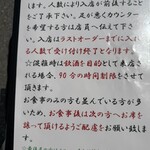 ます。人数により入店が前後する
をご了承下さい。足が悪くカウンター
を希望する方は店員へ伝えて下
い。入店はラストオーダーまでに入れ
る人数で受け付け終了となります
☆混雑時は飲酒を目的として来店
される場合、90分の時間制限をさせ
て頂きます。
お食事のみの方も並んでいる方が多
いため、お食事後は次の方へお席を
譲って頂けるようご配慮をお願い
致します。